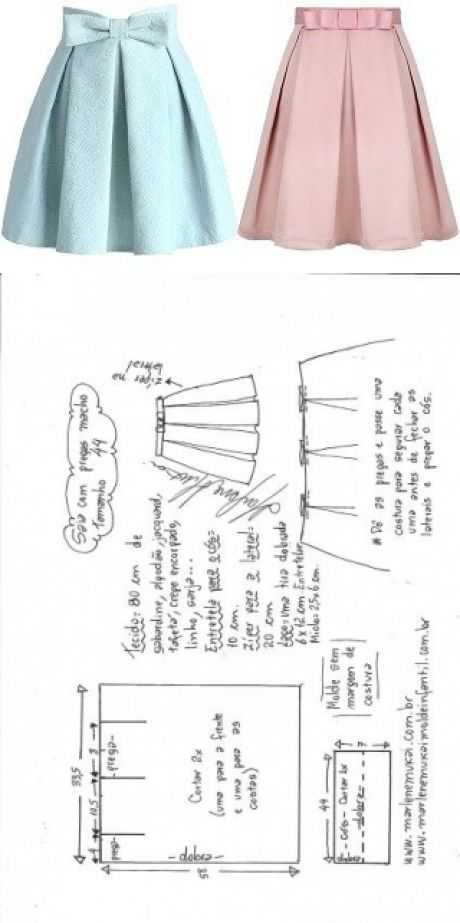 Saia com pregas macho
Tamanho 44
zíper
na lateral
Tecido= 80 cm de
gabardine, algodão, jacquard,
tafetá, crepe encorpado,
linho, sarja...
Entretela para o cós=
10 cm.
Zíper para a lateral=
20 cm
Laço= uma tira dobrada
6x12 cm Entretela
Miolo= 25x6 cm.
* Dê as pregas e passe uma
costura para segurar cada
uma antes de fechar as
laterais e pregar o cós.
33,5
4
10,5
8
prega
prega
Cortar 2x
(uma para a frente
e uma para as
costas)
- dobra -
58
Molde sem
margem de
costura
44
- Cós - Cortar 1x
dobra
dobra
7
www.marlenemukai.com.br
www.marlenemukaimoldeinfantil.com.br